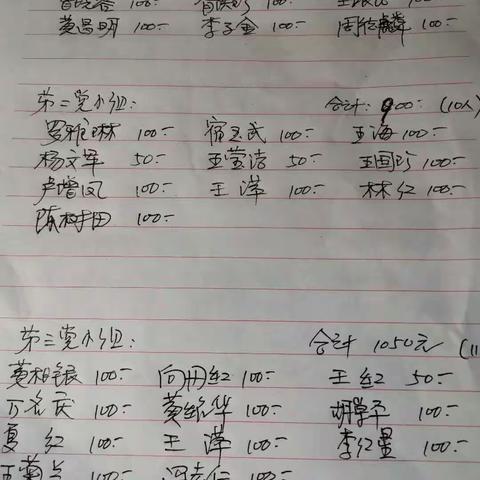 100:-
黄昌明 100:- 李子金 100:- 周纶麟 100:-
第二党小组: 合计: 900:- (10人)
罗雅琳 100:- 宿玉武 100:- 王海 100:-
杨文军 50:- 王莹洁 50:- 王国珍 100:-
卢增凤 100:- 王萍 100:- 林红 100:-
陈树田 100:-
第三党小组: 合计 1050元 (11
黄相银 100:- 向用红 100:- 王红 50:-
万名庆 100:- 黄绍华 100:- 胡学平 100:-
夏红 100:- 王萍 100:- 李红星 100:-
100:- 100:-